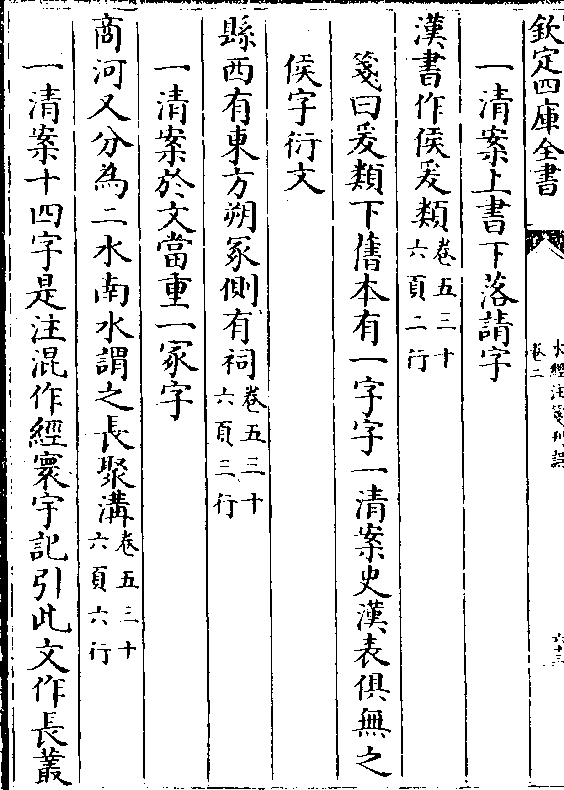 欽定四庫全書
水經注箋刊誤
卷二
六十三
一清案上書下落請字
漢書作侯爰類卷五三十六頁二行
箋曰爰類下舊本有一字字一清案史漢表俱無之
侯字衍文
縣西有東方朔冢側有祠卷五三十六頁三行
一清案於文當重一冢字
商河又分為二水南水謂之長聚溝卷五三十六頁六行
一清案十四字是注混作經寰宇記引此文作長叢